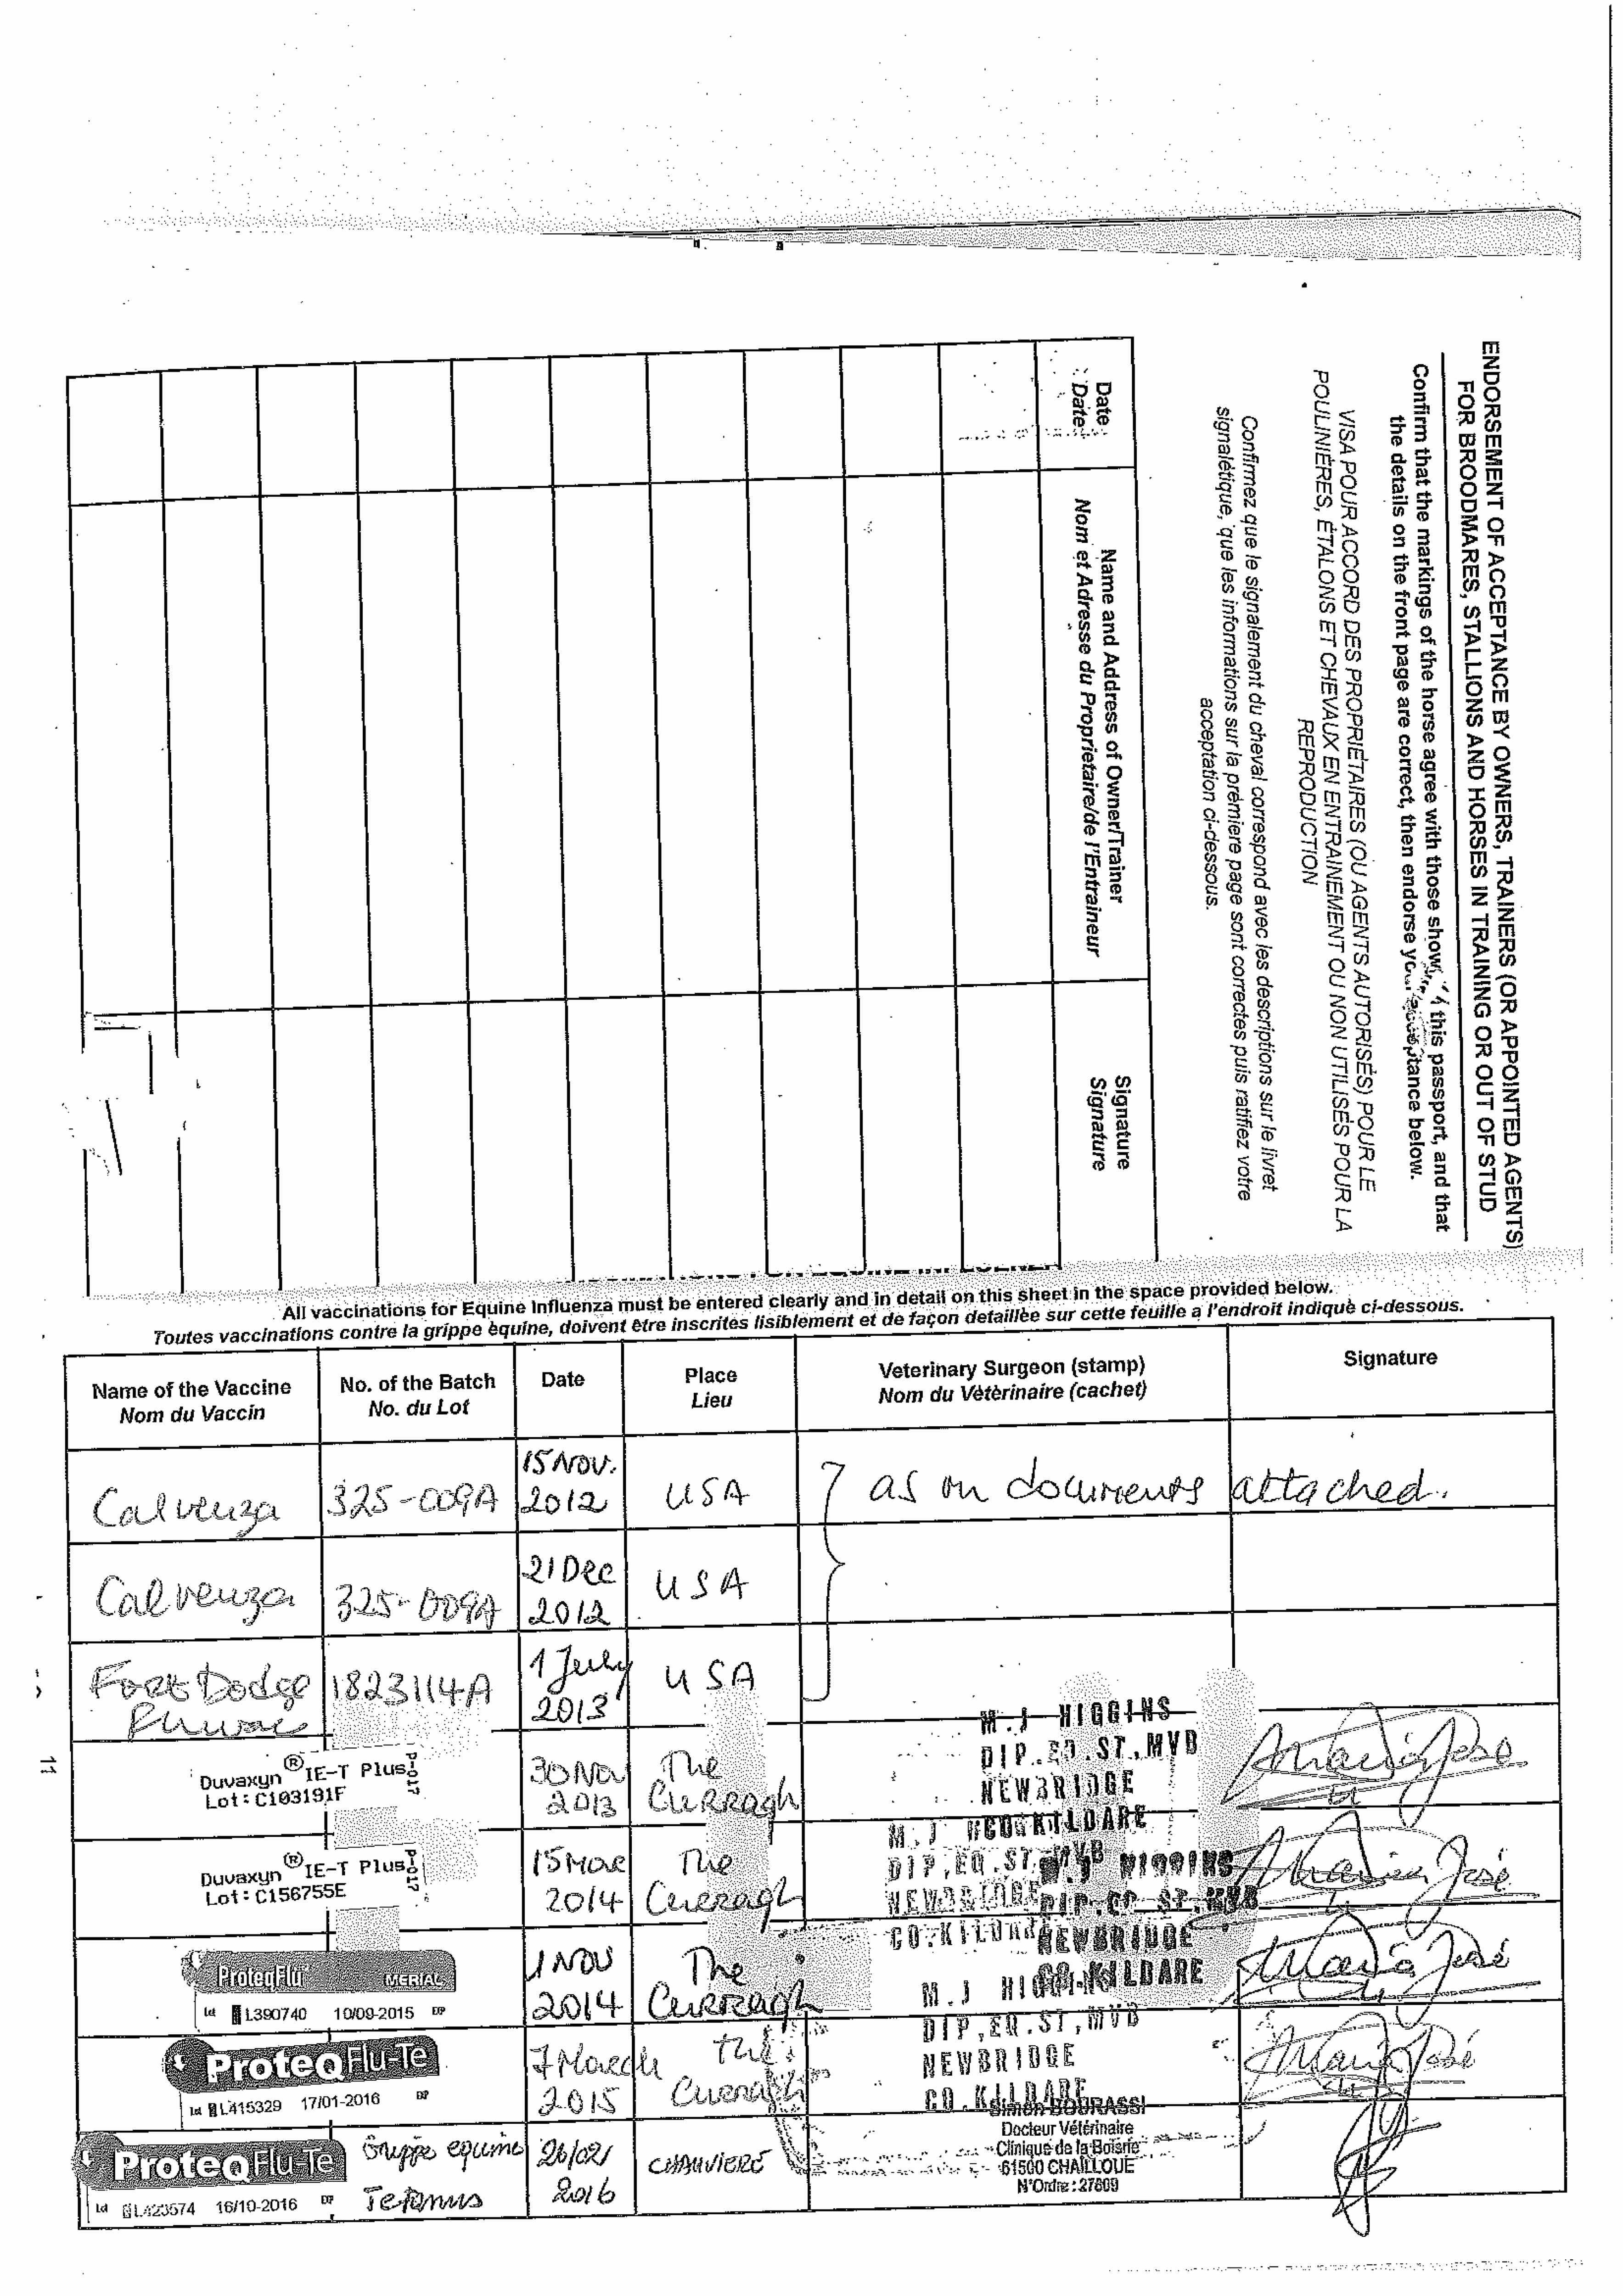 ENDORSEMENT OF ACCEPTANCE BY OWNERS, TRAINERS (OR APPOINTED AGENTS)
FOR BROODMARES, STALLIONS AND HORSES IN TRAINING OR OUT OF STUD
Confirm that the markings of the horse agree with those this passport, and that
the details on the front page are correct, then endorse below.
VISA POUR ACCORD DES PROPRIÉTAIRES (OU AGENTS AUTORISÉS) POUR LE
POULINIÈRES, ÉTALONS ET CHEVAUX EN ENTRAINEMENT OU NON UTILISÉS POUR LA
REPRODUCTION
Confirmez que le signalement du cheval correspond avec les descriptions sur le livret
signalétique, que les informations sur la prèmiere page sont correctes puis ratifiez votre
acceptation ci-dessous.
Date Name and Address of Owner/Trainer Signature
Date Nom et Adresse du Proprietaire/de l'Entraineur Signature
All vaccinations for Equine Influenza must be entered clearly and in detail on this sheet in the space provided below.
Toutes vaccinations contre la grippe èquine, doivent être inscrites lisiblement et de façon detaillèe sur cette feuille a l'endroit indiquè ci-dessous.
Name of the Vaccine No. of the Batch Date Place Veterinary Surgeon (stamp) Signature
Nom du Vaccin No. du Lot Lieu Nom du Vètèrinaire (cachet)
Calvenza 325-009A 15 NOV. 2012 USA as on documents attached.
Calvenza 325-009A 21 Dec 2012 USA
Fort Dodge 1823114A 1 July 2013 USA
M.J HIGGINS
DIP.EQ.ST,MVB
NEWBRIDGE
CO.KILDARE
Duvaxyn ® IE-T Plus 30 Nov 2013 The Curragh
Lot: C103191F
M.J HIGGINS
DIP,EQ.ST,MVB
NEWBRIDGE
CO.KILDARE
Duvaxyn ® IE-T Plus 15 Mar 2014 The Curragh María José
Lot: C156755E
M.J HIGGINS
DIP.EQ.ST,MVB
NEWBRIDGE
CO.KILDARE
ProteqFlu MERIAL 1 NOV 2014 The Curragh María José
Lot L390740 10/09-2015 EXP
M.J HIGGINS
DIP,EQ.ST,MVB
NEWBRIDGE
CO.KILDARE
ProteqFlu-Te 7 March 2015 The Curragh María José
Lot L415329 17/01-2016 EXP
ProteqFlu-Te Grippe equine 26/02/ 2016 CHAUVIERE
Lot L423574 16/10-2016 EXP Tetanus
Simon BOURASSI
Docteur Vétérinaire
Clinique de la Boisrie
61500 CHAILLOUE
N°Ordre : 27809
11